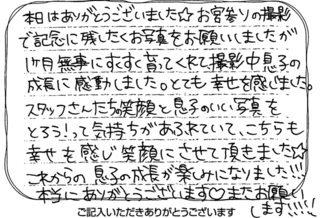 本日はありがとうございました☆お宮参りの撮影
で記念に残したくお写真をお願いしましたが
1ヶ月無事にすくすく育ってくれて撮影中息子の
成長に感動しました。とても幸せを感じました。
スタッフさんたちの笑顔と息子のいい写真を
とろう!って気持ちがあふれていて、こちらも
幸せを感じ笑顔にさせて頂きました☆
これからの息子の成長が楽しみになりました!!!
本当にありがとうございます♡またお願い
します!!!!
ご記入いただきありがとうございます